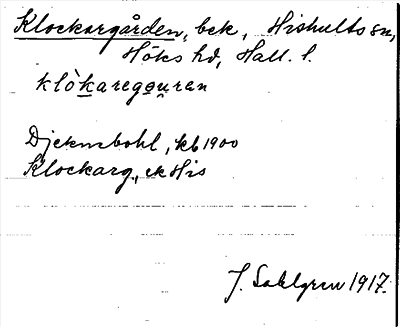 Klockargården, bek, Hishults sn,
Höks hd, Hall. l.
klòkaregouran
Djeknebohl, kb 1900
Klockarg., ek His
J. Sahlgren 1917.